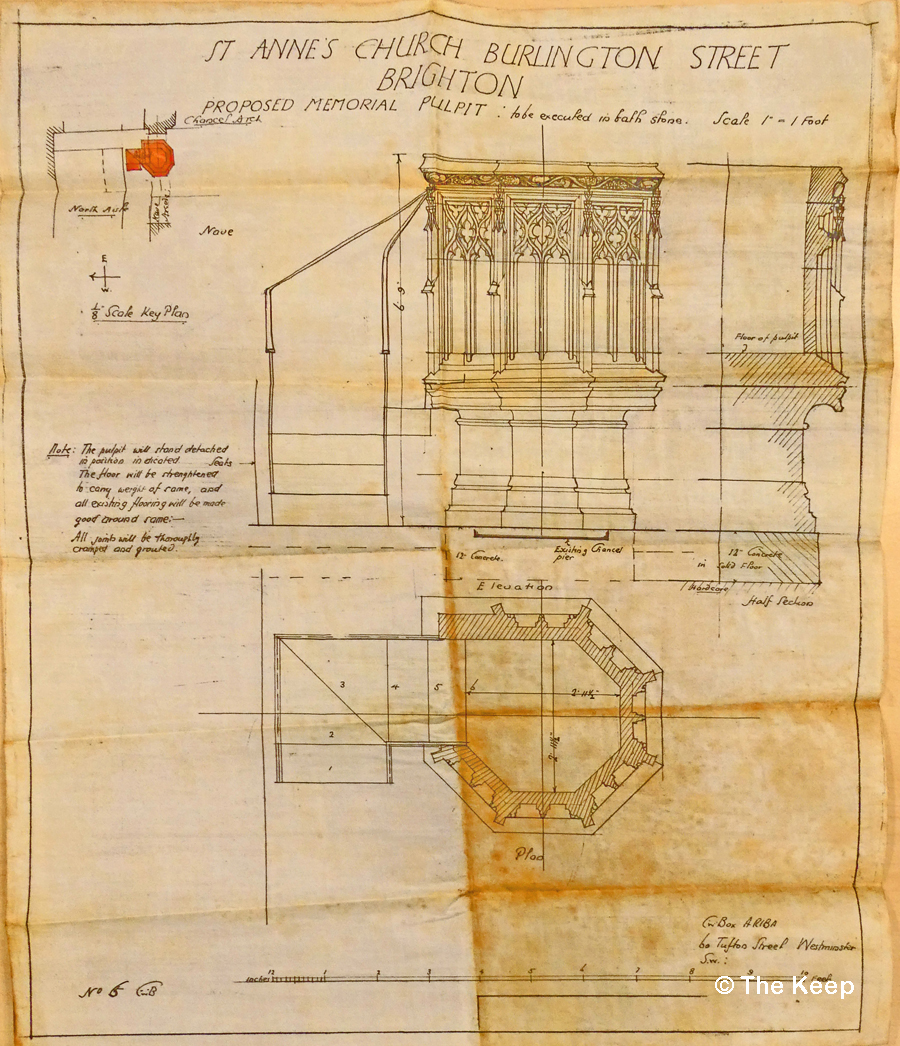 ST ANNE'S CHURCH BURLINGTON STREET
BRIGHTON
PROPOSED MEMORIAL PULPIT : to be executed in bath stone. Scale 1" = 1 Foot
Chancel Arch
North Aisle
Nave Arcade
Nave
E
W
1/8" Scale Key Plan
6'9
Floor of pulpit
Note: The pulpit will stand detached
in position indicated
The floor will be strenghtened
to carry weight of same, and
all existing flooring will be made
good around same:—
All joints will be thoroughly
cramped and grouted.
Seats
12" Concrete.
Existing Chancel
pier
12" Concrete
in Solid Floor
Hardcore
Elevation
Half Section
1
2
3
4
5
6
2'-11½"
Plan
CW Box ARIBA
60 Tufton Street Westminster
S.W.:
No 6 CWB
Inches 12 1 2 3 4 5 6 7 8 9 10 Feet
© The Keep